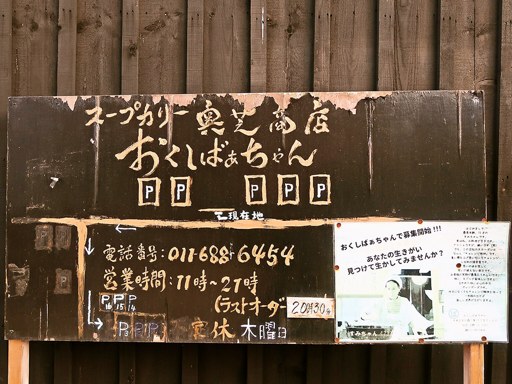 スープカリー 奥芝商店
おくしばぁちゃん
P P P P P
現在地
電話番号:011-688-6454
営業時間:11時~21時
(ラストオーダー 20時30分
P P P
16 15 14
P P P
定休 木曜日
おくしばぁちゃんで募集開始!!!
あなたの生きがい
見つけて生かしてみませんか?